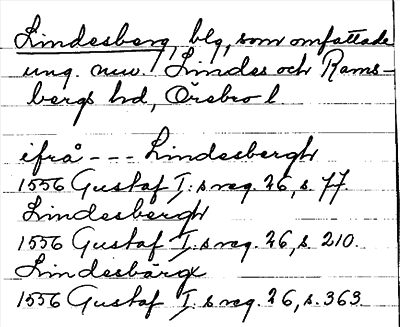 Lindesberg, blg, som omfattade
ung. nuv. Lindes och Rams-
bergs hd, Örebro l.
ifrå --- Lindesbergh
1556 Gustaf I:s reg. 26, s. 77
Lindesbergh
1556 Gustaf I:s reg. 26, s. 210.
Lindesbärgx
1556 Gustaf I:s reg. 26, s. 363.